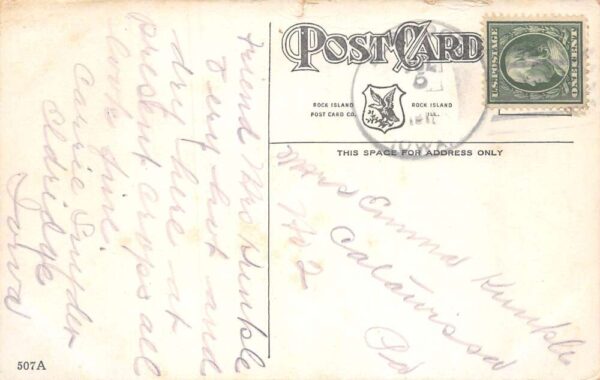 POST CARD
ROCK ISLAND
POST CARD CO.
ROCK ISLAND
ILL.
THIS SPACE FOR ADDRESS ONLY
U.S. POSTAGE
ONE CENT
1911
IOWA
Friend Mrs Kunkle
Very hot and
dry here at
present crops all
look fine.
Carrie Snyder
Eldridge
Iowa
Mrs Emma Kunkle
No 2
Catawissa
Pa
507A